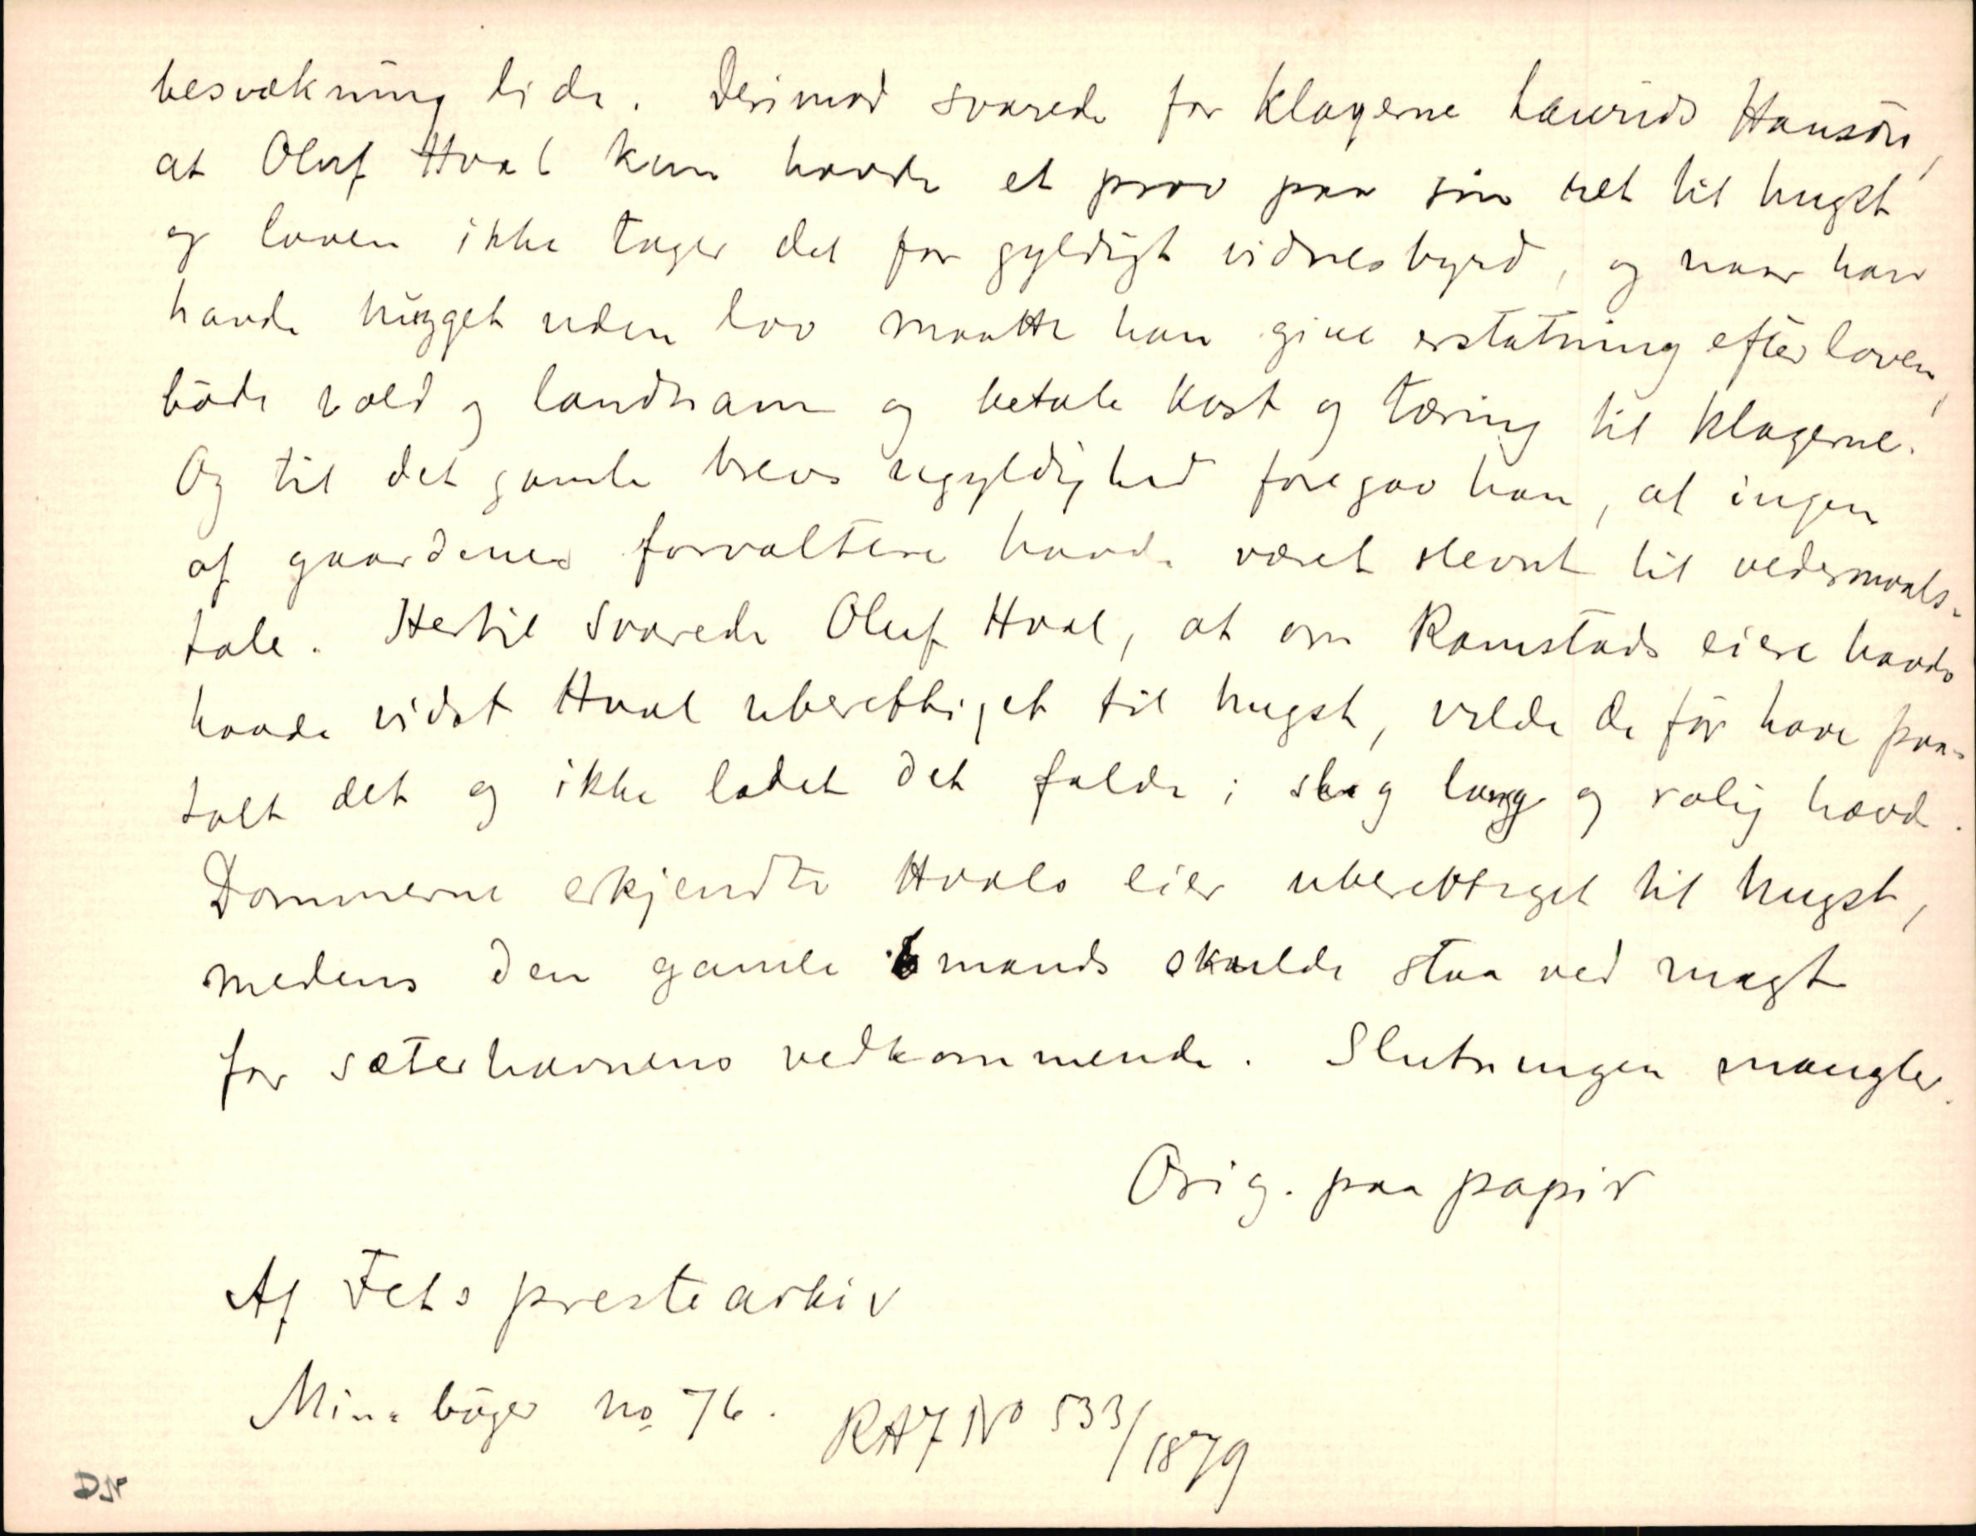 besvækning lide. Derimod svarede for klagerne Laurids Hansön,
at Oluf Hval kun havde et prov paa sin ret til hugst
og loven ikke tager det for gyldigt vidnesbyrd, og naar han
havde hugget uden lov maatte han give erstatning efter loven,
både vold og landnam og betale kost og tæring til klagerne.
Og til det gamle brevs ugyldighed foregav han, at ingen
af gaardenes forvaltere havde været stevnt til vedermaals-
tale. Hertil svarede Oluf Hval, at om Ramstads eiere havde
havde vidst Hval uberettiget til hugst, vilde de för have paa-
talt det og ikke ladet det falde i slig lang og rolig hævd.
Dommerne erkjendte Hvals eier uberettiget til hugst,
medens den gamle 6 mands skulde staa ved magt
for sæterhavnens vedkommende. Slutningen mangler.
Orig. paa papir
Af Fets prestearkiv
Mine böger no 76. RA7 No 533/1879
DN